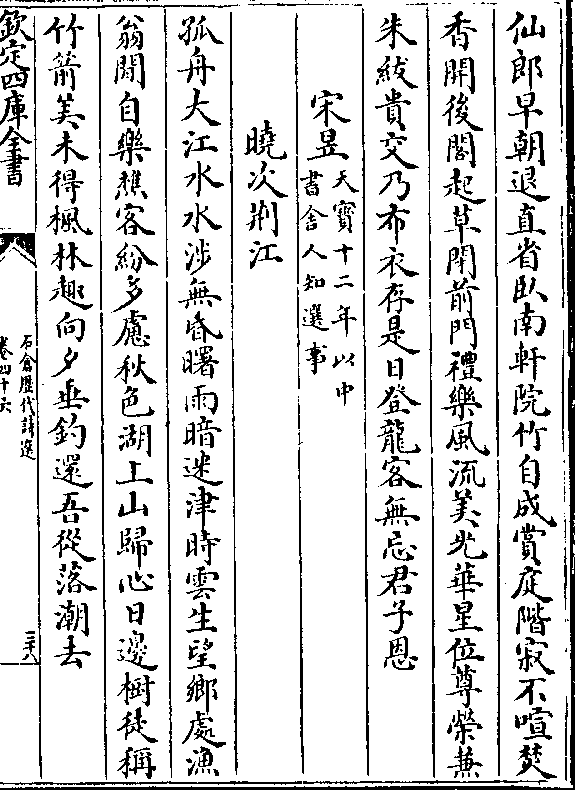 仙郎早朝退直省臥南軒院竹自成賞庭階寂不喧焚
香開後閣起草閉前門禮樂風流美光華星位尊榮兼
朱紱貴交乃布衣存是日登龍客無忘君子恩
宋昱天寶十二年以中
書舍人知選事
曉次荆江
孤舟大江水水涉無昏曙雨暗迷津時雲生望鄉處漁
翁閒自樂樵客紛多慮秋色湖上山歸心日邊樹徒稱
竹箭美未得楓林趣向夕垂釣還吾從落潮去
欽定四庫全書
石倉歷代詩選
卷四十六